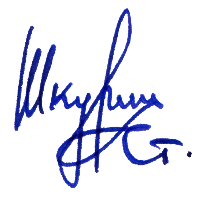 Шкурин
Ст.